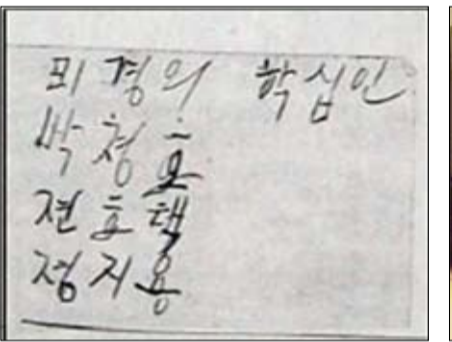 뫼경의 학심인
박청호
전효택
정지용